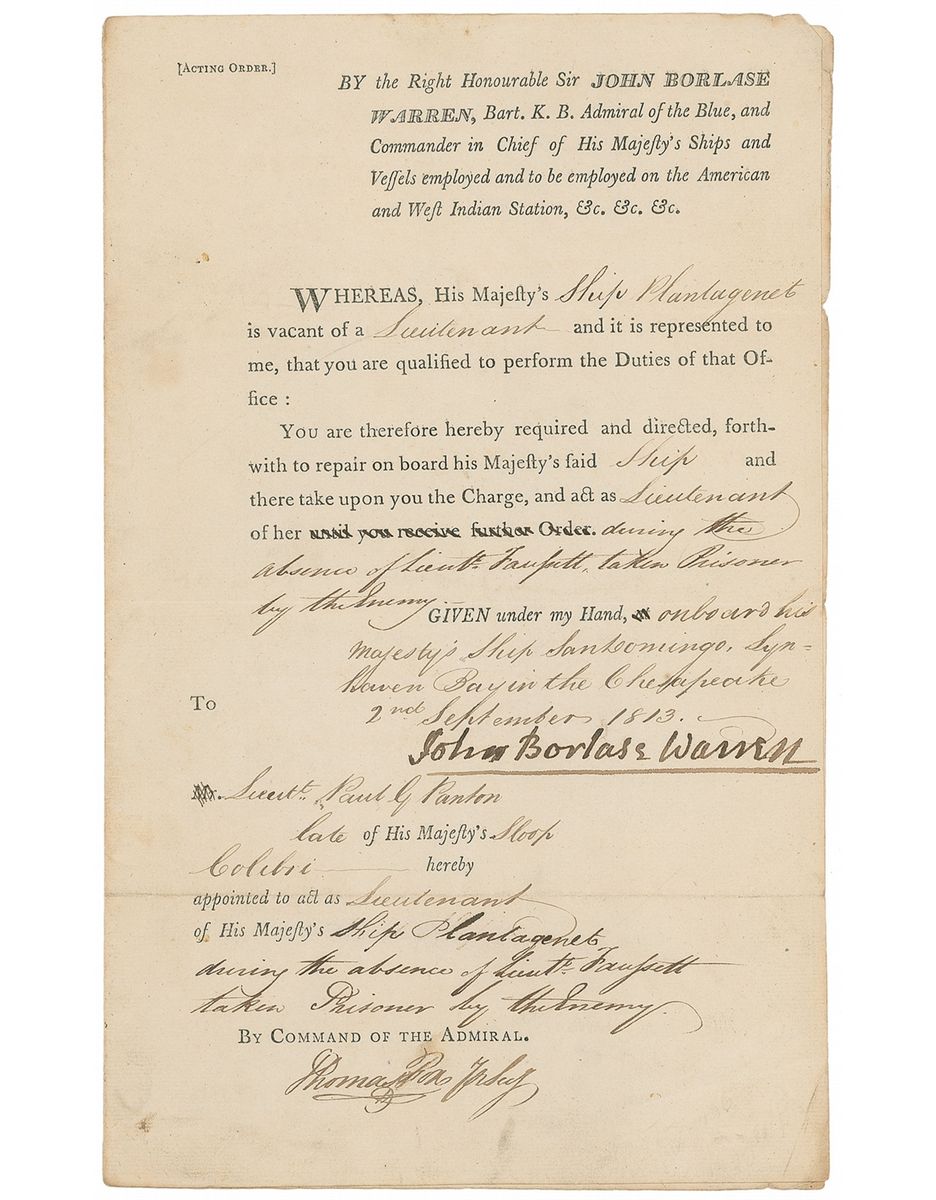 [ACTING ORDER.]
BY the Right Honourable Sir JOHN BORLASE
WARREN, Bart. K. B. Admiral of the Blue, and
Commander in Chief of His Majeſty's Ships and
Veſſels employed and to be employed on the American
and Weſt Indian Station, &c. &c. &c.
WHEREAS, His Majeſty's Ship Plantagenet
is vacant of a Lieutenant and it is represented to
me, that you are qualified to perform the Duties of that Of-
fice :
You are therefore hereby required and directed, forth-
with to repair on board his Majeſty's ſaid Ship and
there take upon you the Charge, and act as Lieutenant
of her until you receive further Order. during the
absence of Lieutt. Faussett, taken Prisoner
by the Enemy.
GIVEN under my Hand, onboard his
Majesty's Ship San Domingo, Lyn-
haven Bay in the Chesapeake
2nd September 1813.
To
John Borlase Warren
Lieutt. Paul G Panton
late of His Majeſty's Sloop
Colibri hereby
appointed to act as Lieutenant
of His Majeſty's Ship Plantagenet
during the absence of Lieutt. Faussett
taken Prisoner by the Enemy.
BY COMMAND OF THE ADMIRAL.
Thomas